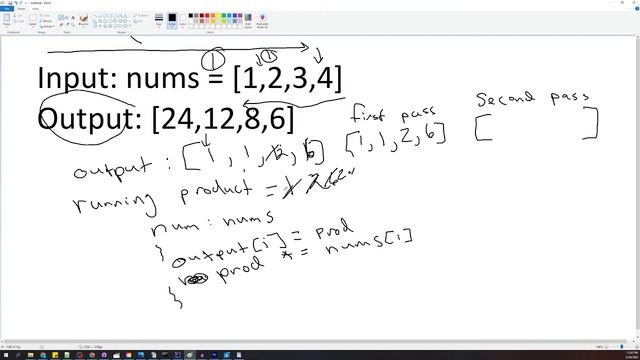 ①
①
Input: nums = [1,2,3,4]
Output: [24,12,8,6]
first pass
second pass
output : [1, 1, 2, 6] [1, 1, 2, 6] [ ]
running product = 1 2 6
num : nums
{
output[i] = prod
prod *= nums[i]
}